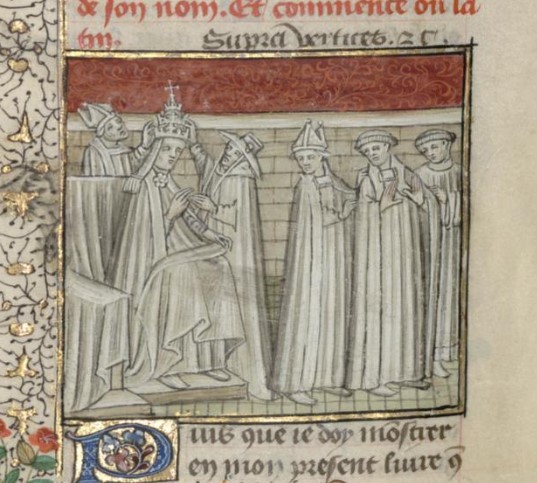 de son nom. Et commence ou la
tin. Supra vertices. 2c
Puis que ie doy mōstrer
en mon present liure q̄